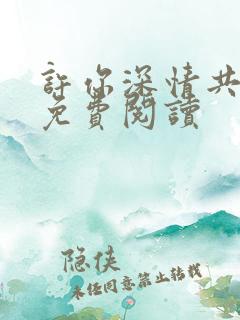 許你深情共
免費閱讀
隐侠
未经同意禁止转载